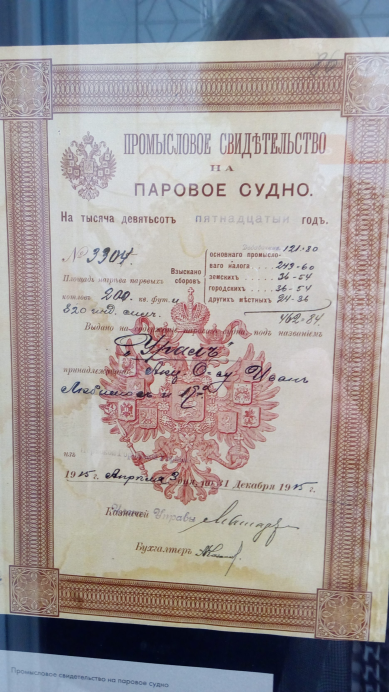 86
ПРОМЫСЛОВОЕ СВИДѢТЕЛЬСТВО
НА
ПАРОВОЕ СУДНО.
На тысяча девятьсотъ пятнадцатый годъ.
№ 3904
Площадь нагрѣва паровыхъ
котловъ 200 кв. фут.
820 инд. силъ.
Взыскано сборовъ
121-80
основного промысло-
ваго налога 243-60
земскихъ 36-54
городскихъ 36-54
другихъ мѣстныхъ 24-36
462-84
Выдано на содержаніе пароваго судна, подъ названіемъ
"Уралъ"
принадлежащаго Акц. О-ву Иванъ
Любимовъ и К°
изъ
1915 г. Апрѣля 3 дня, по 31 Декабря 1915 г.
Казначей Управы
Бухгалтеръ
Промысловое свидетельство на паровое судно